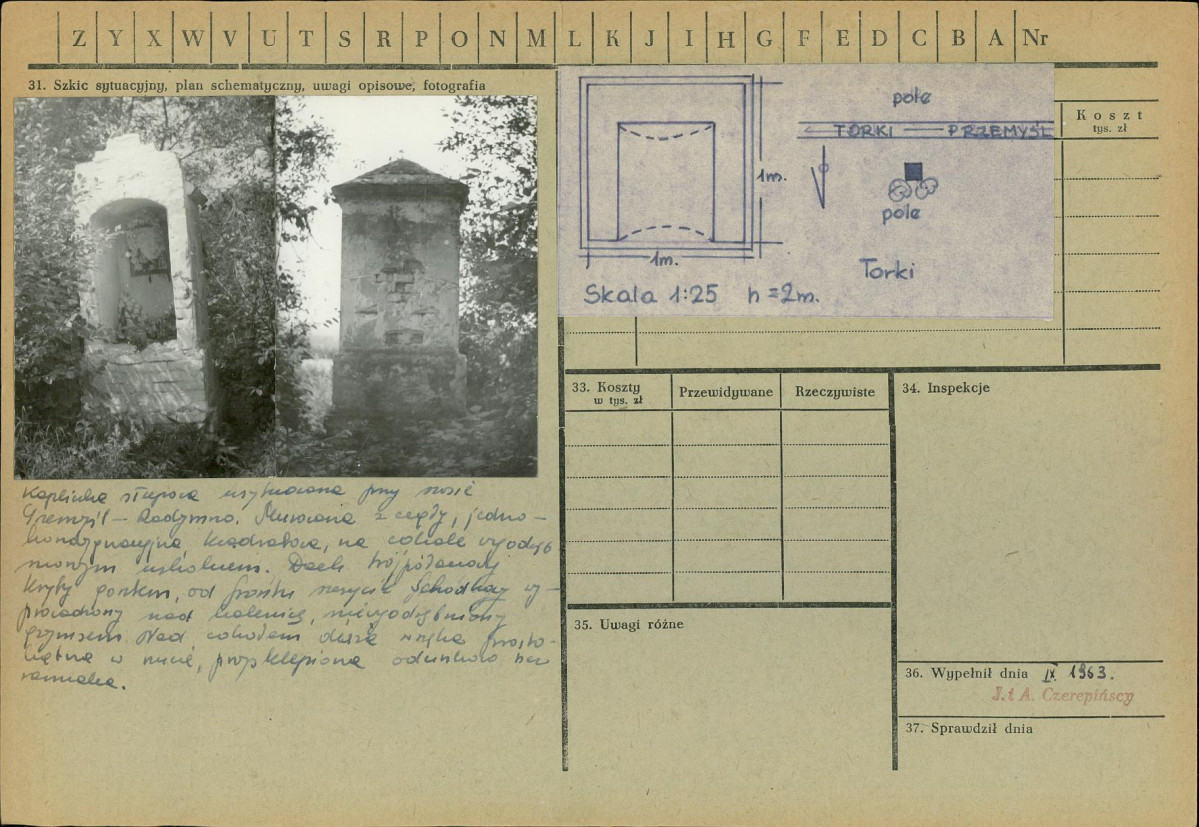 Z Y X W V U T S R P O N M L K J I H G F E D C B A Nr
31. Szkic sytuacyjny, plan schematyczny, uwagi opisowe, fotografia
Kapliczka słupowa usytuowana przy szosie
Przemyśl – Radymno. Murowana z cegły, jedno-
kondygnacyjna, kwadratowa, na cokole wyodręb
nionym uskokiem. Dach trójpołaciowy
kryty gontem, od frontu szczyt schodkowy wy-
prowadzony nad kalenicę, niewyodrębniony
gzymsem. Nad cokołem duża wnęka prosto-
kątna w rzucie, przesklepiona odcinkowo bez
ramiaka.
pole
← TORKI — PRZEMYŚL
pole
Torki
1m.
1m.
Skala 1:25 h = 2m.
Koszt
tys. zł
33. Koszty
w tys. zł
Przewidywane
Rzeczywiste
34. Inspekcje
35. Uwagi różne
36. Wypełnił dnia IX 1963.
J. i A. Czerepińscy
37. Sprawdził dnia